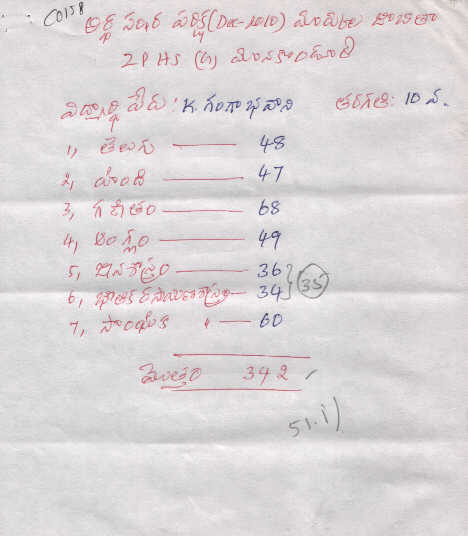 C0158
అర్ధ సంవత్సర పరీక్ష (Dec-2010) మార్కుల జాబితా
ZPHS (G)
విద్యార్థి పేరు : K. గంగాభవాని తరగతి: 10 వ.
1, తెలుగు — 48
2, హిందీ — 47
3, గణితం — 68
4, ఆంగ్లం — 49
5, జీవశాస్త్రం — 36
6, భౌతిక రసాయనశాస్త్రం — 34 } 35
7, సాంఘిక " — 60
మొత్తం 342
51.1)